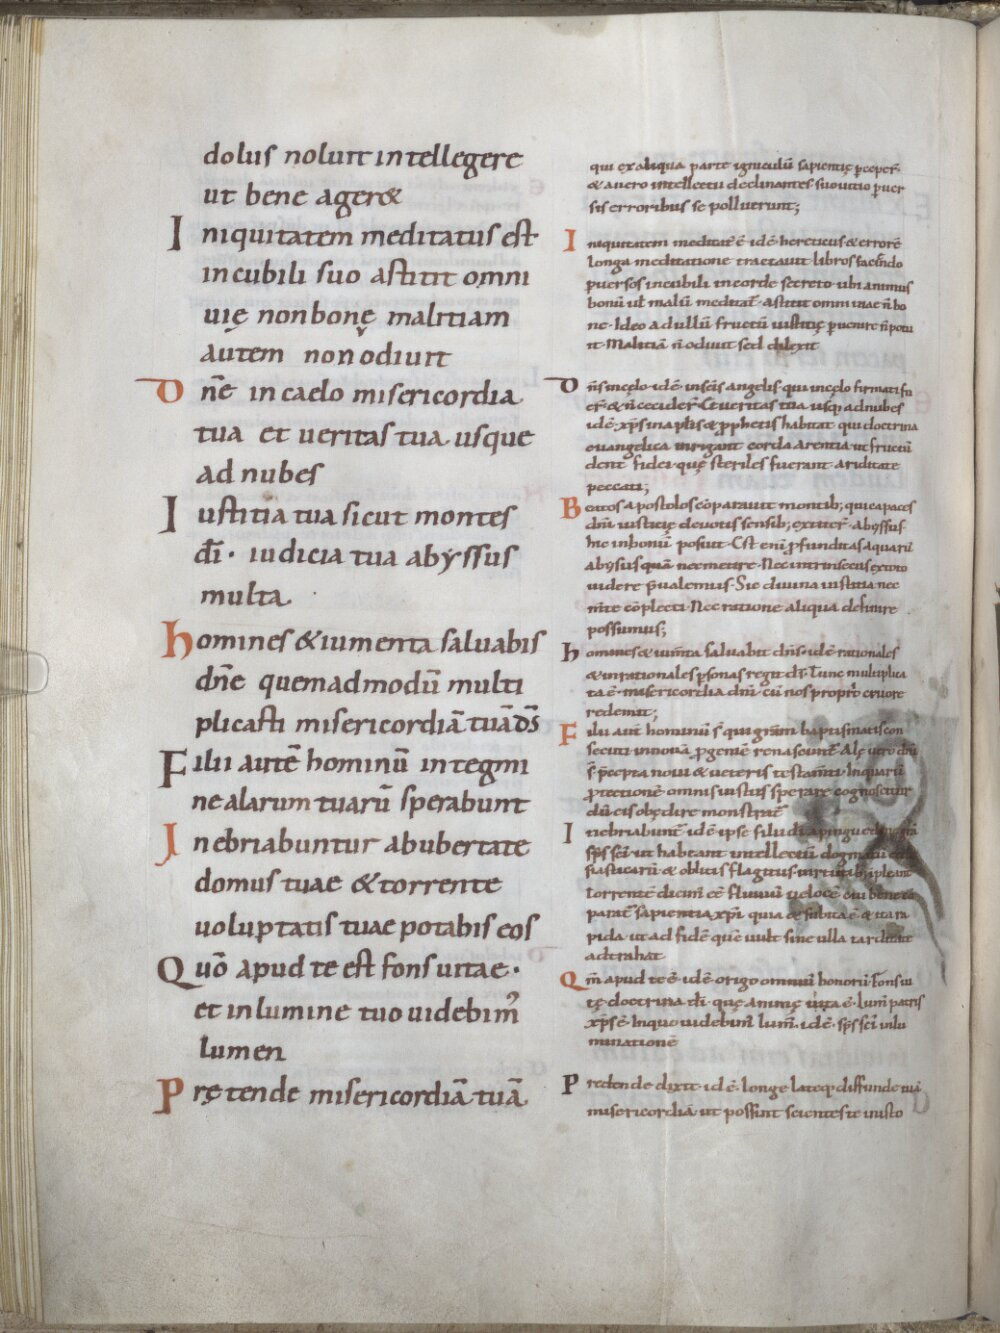 dolus noluit intellegere
ut bene ageret
Iniquitatem meditatus est
in cubili suo astitit omni
uię non bonę malitiam
autem non odiuit
Dn̄e in caelo misericordia
tua et ueritas tua usque
ad nubes
Iustitia tua sicut montes
dī · iudicia tua abyssus
multa
homines & iumenta saluabis
dn̄e quemadmodū multi
plicasti misericordiā tuā ds̄
Filii autē hominū in tegmi
ne alarum tuarū sperabunt
Inebriabuntur ab ubertate
domus tuae & torrente
uoluptatis tuae potabis eos
Quō apud te est fons uitae ·
et in lumine tuo uidebim᾽
lumen
Prętende misericordiā tuā
qui ex aliqua parte igniculū sapientię
& a uero intellectu declinantes suo uitio
sis erroribus se polluerunt;
Iniquitatem ē · id ē · hereticus & errorē
longa meditatione tractauit libros
puersos in cubili in corde secreto · ubi animus
bonū malū · astitit omni uiae n̄ bo
ne · Ideo ad ullū fructū iustitię n̄
it · Malitiā n̄ odiuit sed dilexit
Dn̄s in cęlo · id ē · in angelis · qui in cęlo firmati
& ueritas tua usq; ad nubes
id ē · habitat qui doctrina
euangelica corda arentia · ut fructū
dent fidei · quę steriles fuerant ariditate
peccati;
Beatos apostolos cōparauit montib; qui capaces
dn̄i iustitię deuotis sensib; · abyssus
hic in bonū posuit · Est enī pfunditas aquarū
abysus quā
uidere pualemus · Sic diuina iustitia nec
cōplecti · Nec ratione aliqua definire
possumus;
homines & saluabit dn̄s · id ē · rationales
& inrationales psonas regit dī · Tunc multiplica
ta ē · misericordia dn̄i · cū nos proprio cruore
redemit;
Filii aut̄ hominū s̄ · qui baptismatis con
secuti in nouā pgeniē
s̄ pcepta noui & ueteris · In quarū
protectionē omnis iustus sperare cognoscitur
dū eis
Inebriabunt̄ · id ē · ipse filii dī a pinguedine
sp̄s sc̄i · ut habeant intellectū
& oblitis flagitiis
torrentē dicim᾽ ēē fluuiū uelocē
sapientia xp̄i · quia & subita ē & ita ra
pida · ut ad fidē quē uult sine ulla
adtrahat
Qm̄ apud te ē · id ē · origo omniū bonorū · Fons ui
tę · doctrina dī · quę animę uita ē · Lum̄ patris
xp̄s ē · In quo uidebim᾽ lum̄ · id ē · sp̄s sc̄i inlu
minationē
Pretende dixit · id ē · longe lateq; diffunde tuā
misericordiā · ut possint scientes te iusto